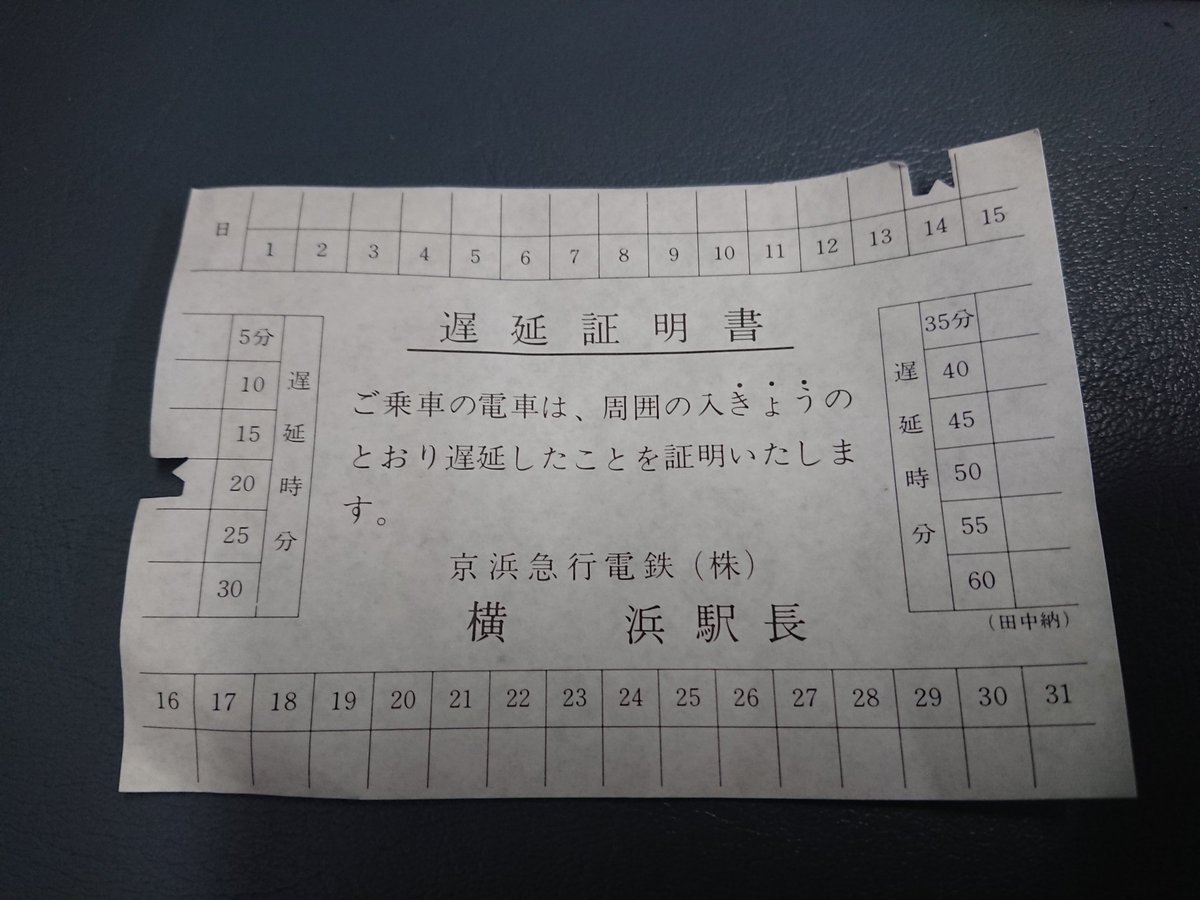 日 1 2 3 4 5 6 7 8 9 10 11 12 13 14 15
遅延証明書
ご乗車の電車は、周囲の入きょうの
とおり遅延したことを証明いたしま
す。
京浜急行電鉄(株)
横 浜駅長
5分
10
15
20
25
30
遅延時分
遅延時分
35分
40
45
50
55
60
(田中納)
16 17 18 19 20 21 22 23 24 25 26 27 28 29 30 31